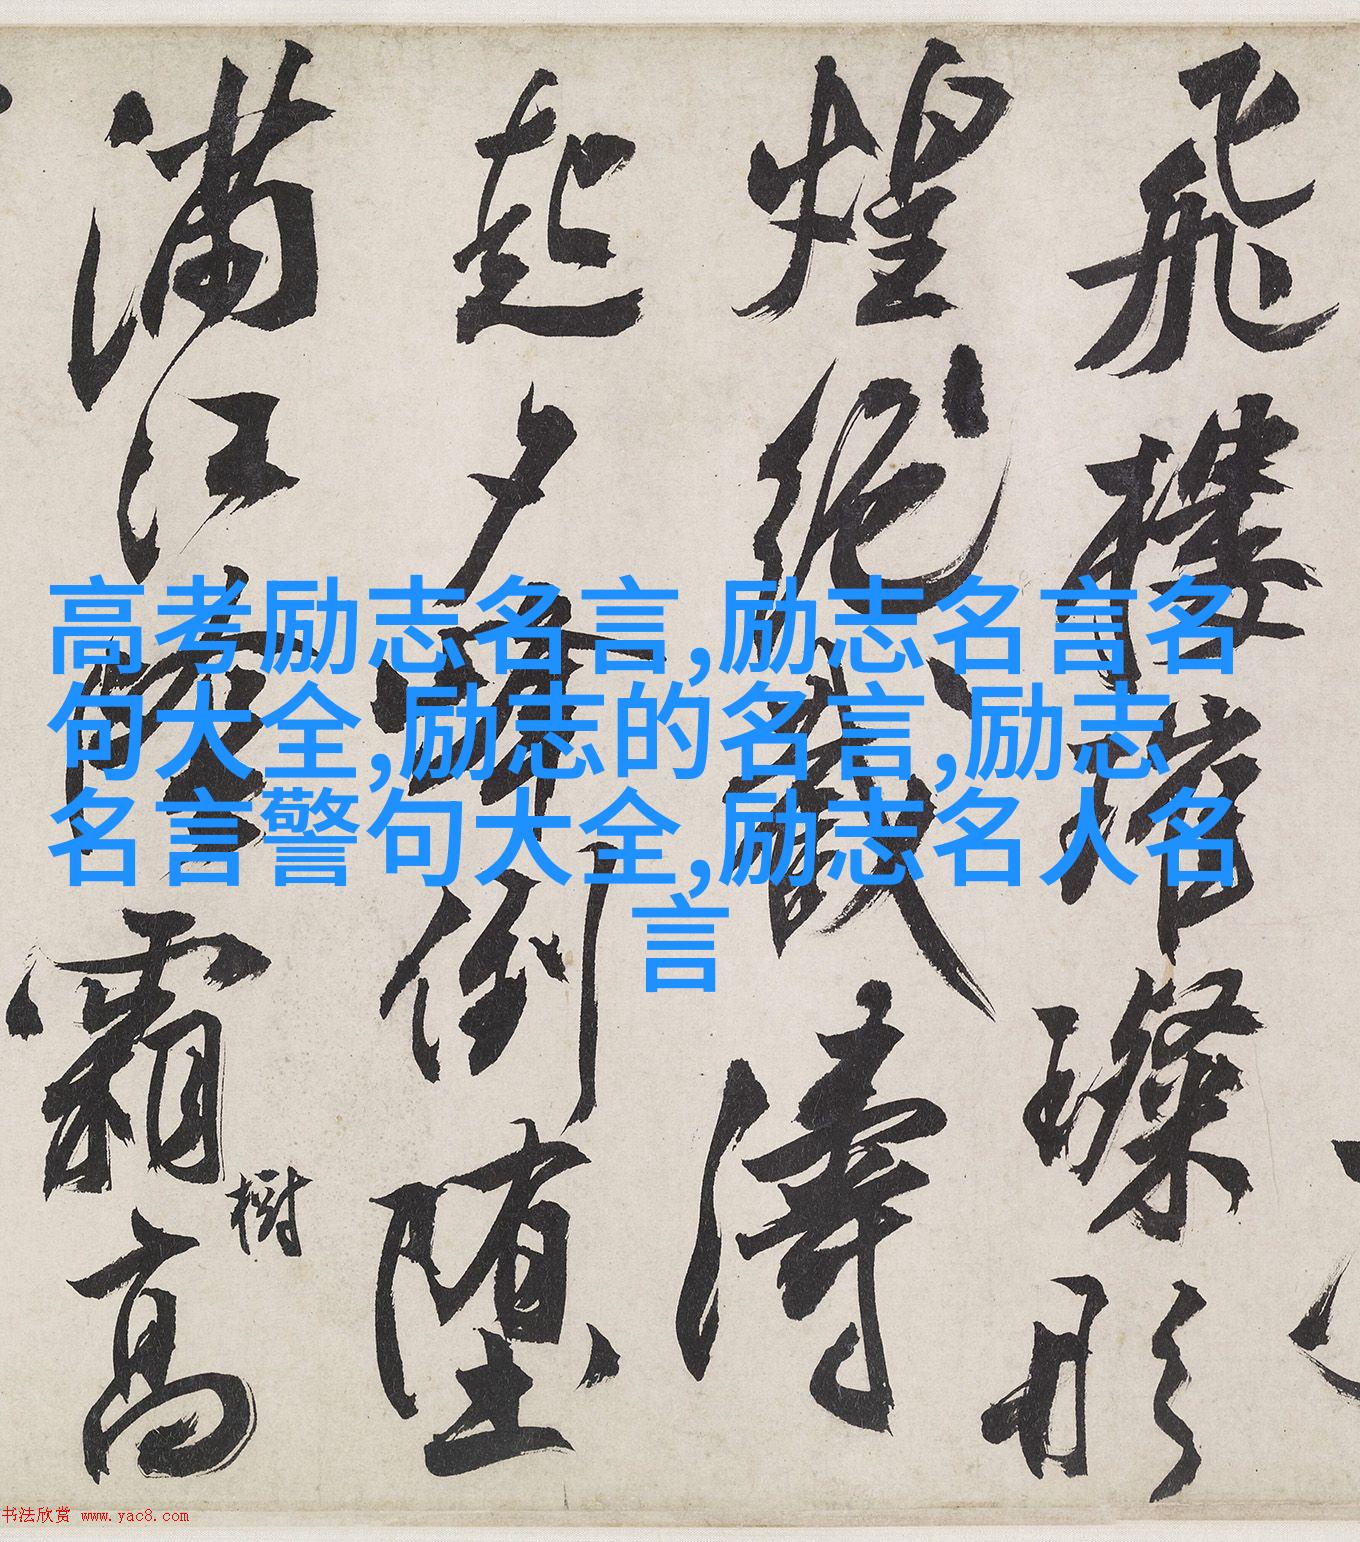 飛樓增璨形
煌絶巘濤
起夕暉倒堕
滿江陰霜高
樹
高考励志名言,励志名言名
句大全,励志的名言,励志
名言警句大全,励志名人名
言
书法欣赏 www.yac8.com